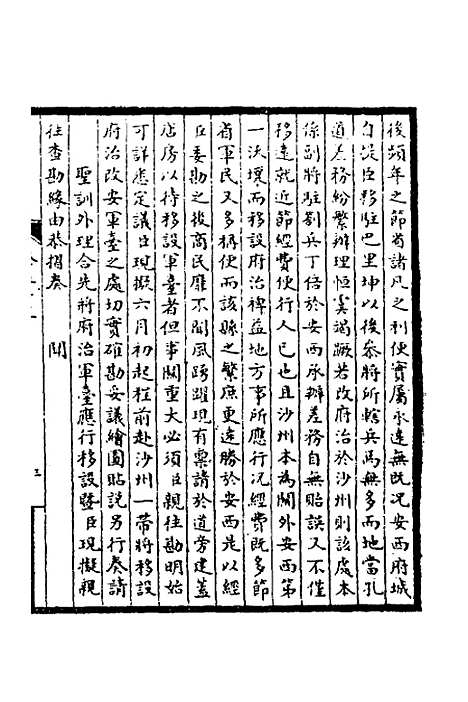 後頻年之節省諸凡之利便實屬永遠無既况安西府城
自提臣移駐巴里坤以後叅將所轄兵馬無多而地當孔
道差務紛繁辦理恒虞竭蹶若改府治於沙州則該處本
係副將駐劄兵丁倍於安西承辦差務自無貽誤又不僅
移遠就近節經費便行人已也且沙州本為關外安西第
一沃壤而移設府治裨益地方事所應行况經費既多節
省軍民又多稱便而該縣之繁庶更遠勝於安西是以經
臣委勘之後商民靡不聞風踴躍現有禀請於道旁建蓋
店房以待移設軍臺者但事關重大必須臣親往勘明始
可詳悉定議臣現擬六月初起程前赴沙州一帶將移設
府治改安軍臺之處切實確勘妥議繪圖貼說另行奏請
聖訓外理合先將府治軍臺應行移設暨臣現擬親
往查勘緣由恭摺奏　聞